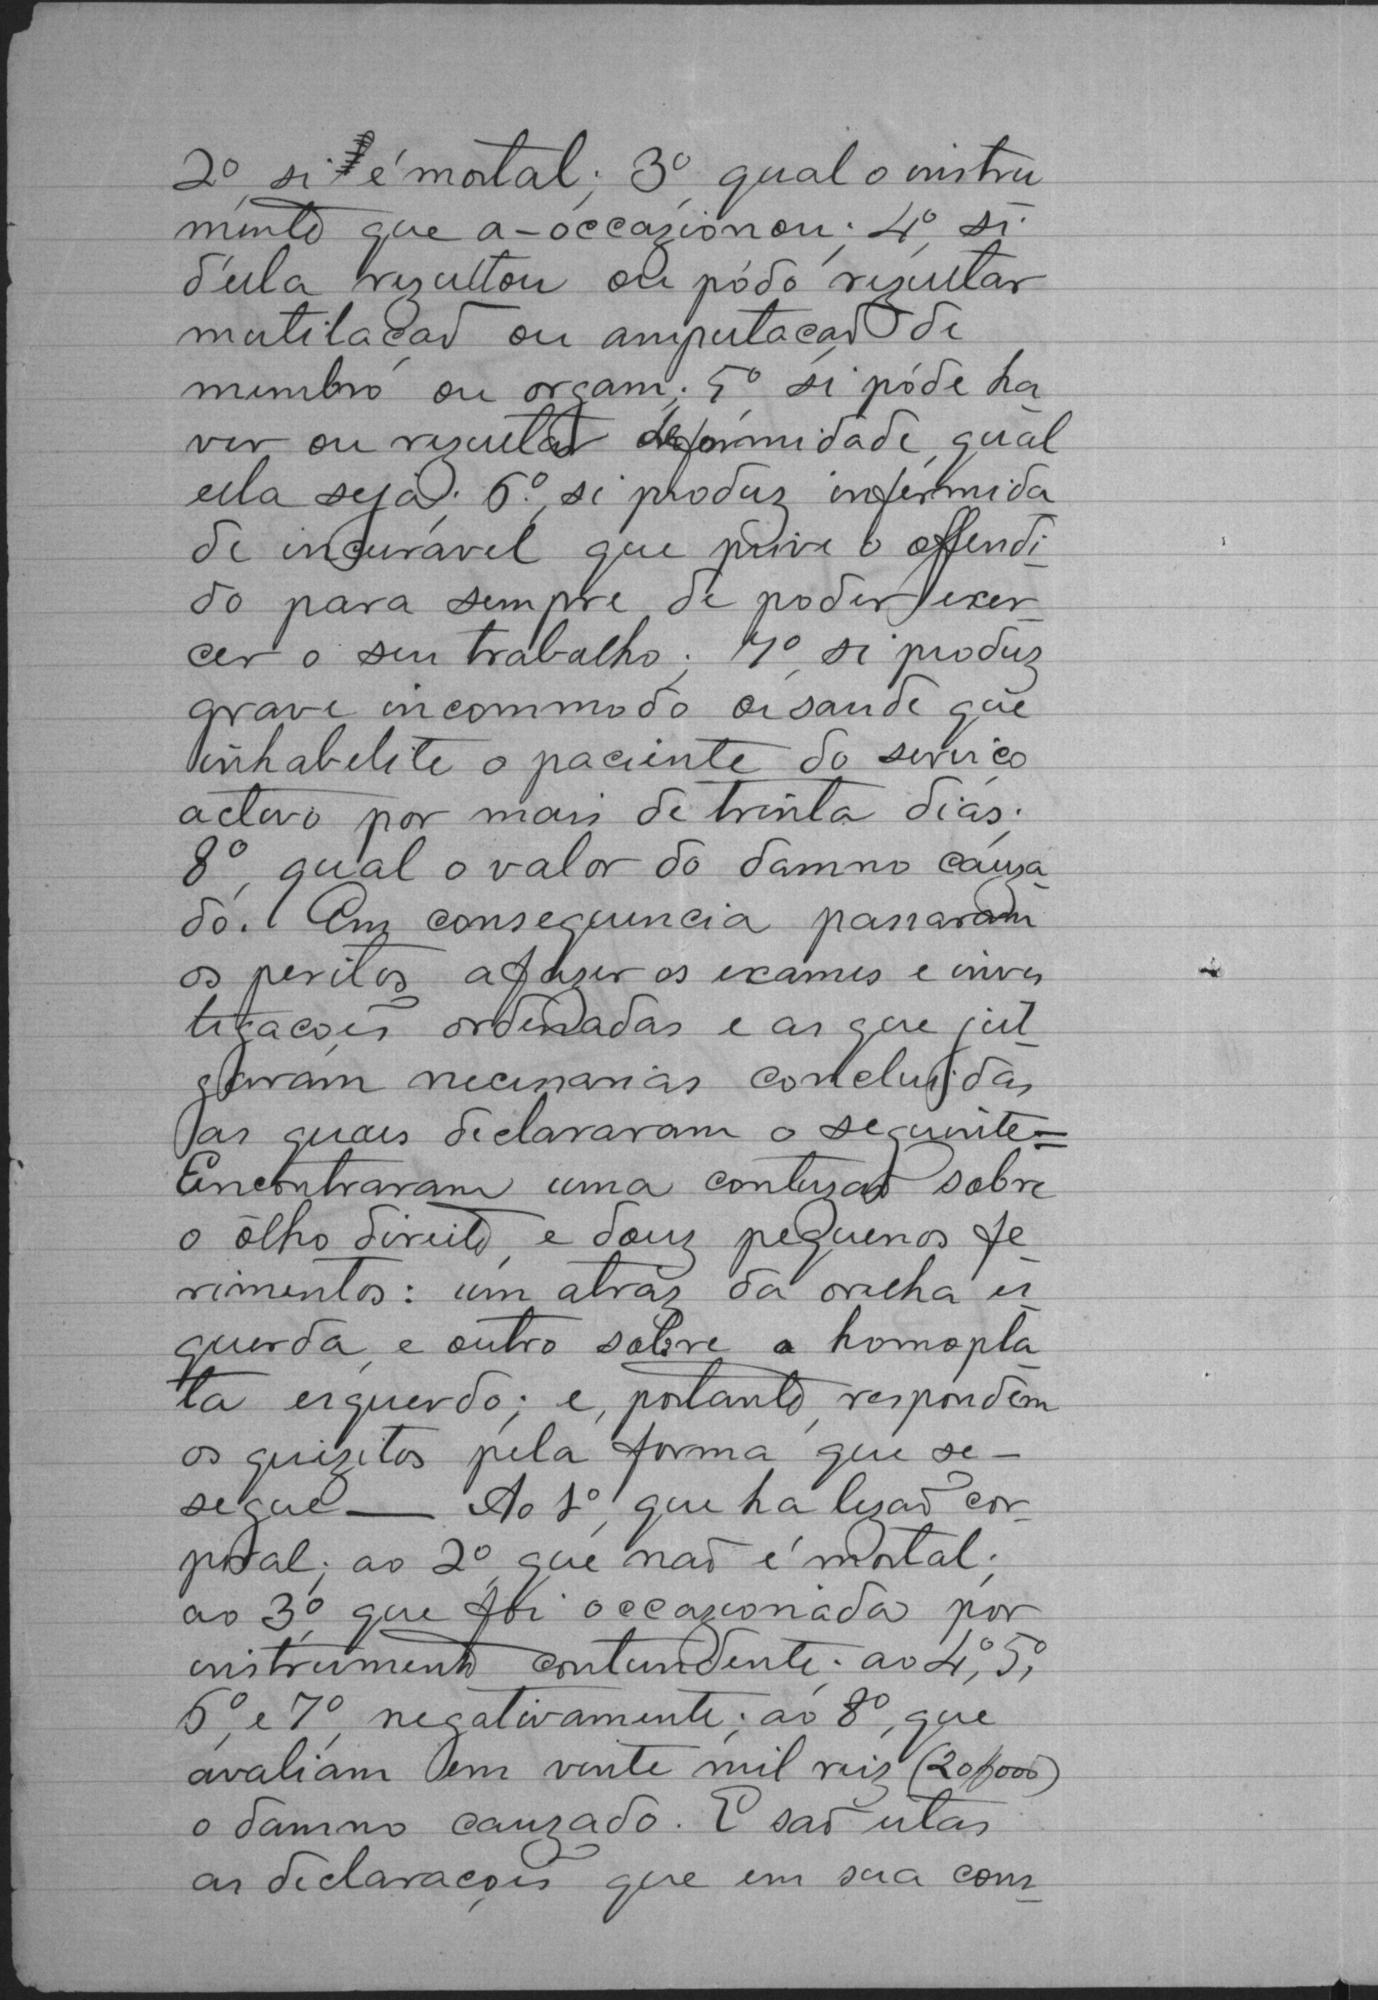 2º, si é mortal; 3º, qual o instru
mento que a-occazionou; 4º, si
d'ella rezultou ou póde rezultar
mutilaçaõ ou amputaçaõ de
membro ou orgam; 5º si póde ha
ver ou rezultar deformidade, qual
ella seja; 6º, si produz infermida
de incuravel que prive o offendi-
do para sempre de poder exer-
cer o seu trabalho; 7º, si produz
grave incommodo de saude que
inhabelite o paciente do serviço
activo por mais de trinta dias;
8º, qual o valor do damno cauza-
do. Em consequencia passaram
os peritos a fazer os exames e inves
tigaçoẽs ordenadas e as que jul-
garam necessarias concluidas
as quaes declararam o seguinte=
Encontraram uma contuzaõ sobre
o ôlho direito, e douz pequenos fe-
rimentos: um atraz da orelha es-
querda, e outro sobre o homopla-
ta esquerdo; e, portanto, respondem
os quizitos pela forma que se-
segue — Ao 1º, que ha lezaõ cor-
poral; ao 2º, que naõ é mortal;
ao 3º, que foi occazionada por
instrumento contundente; ao 4º, 5º,
6º, e 7º, negativamente; ao 8º, que
avaliam em vinte mil reiz (20$000)
o damno cauzado. E saõ estas
as declaraçoẽs que em sua cons-